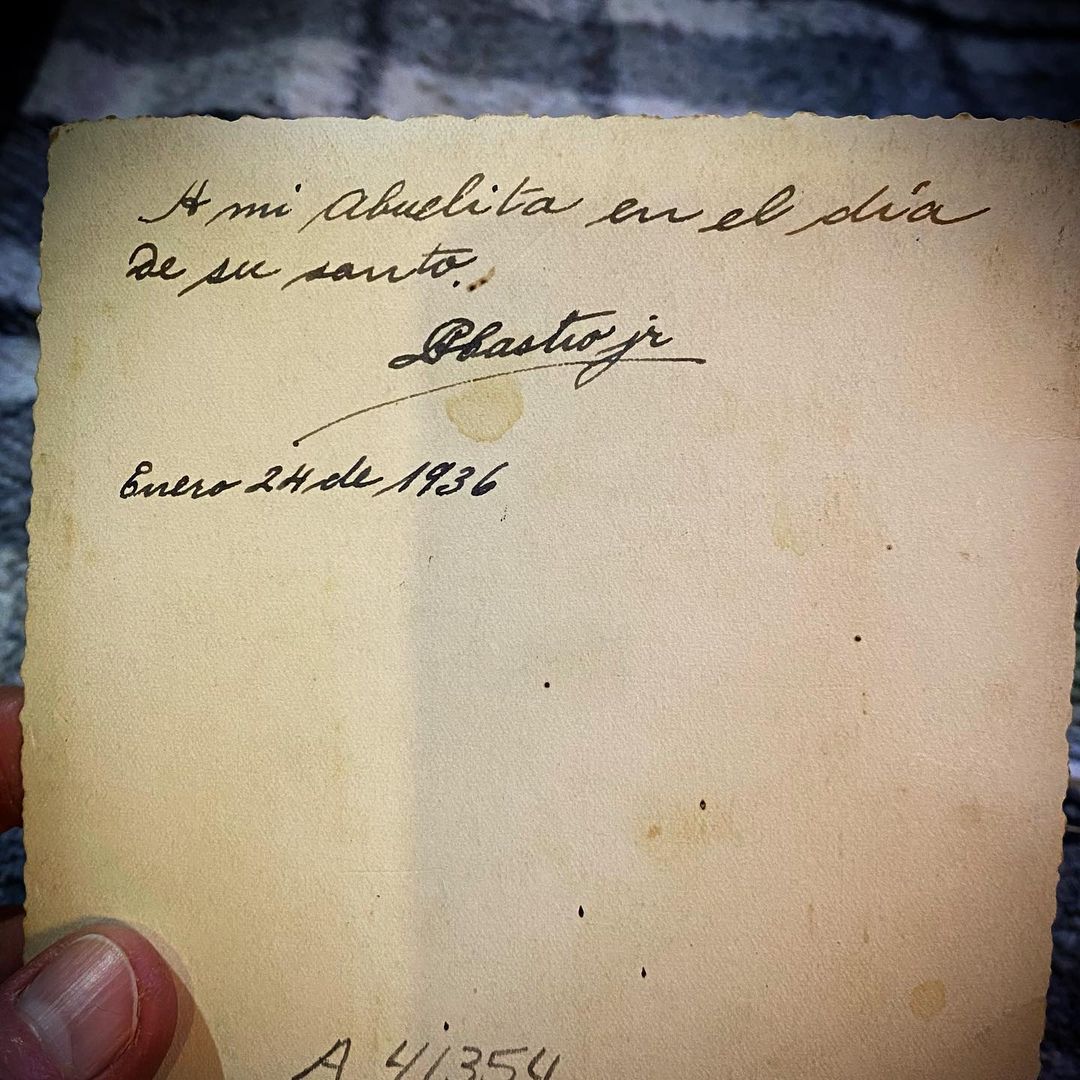 A mi Abuelita en el día
De su santo.
jr
Enero 24 de 1936
A 41354